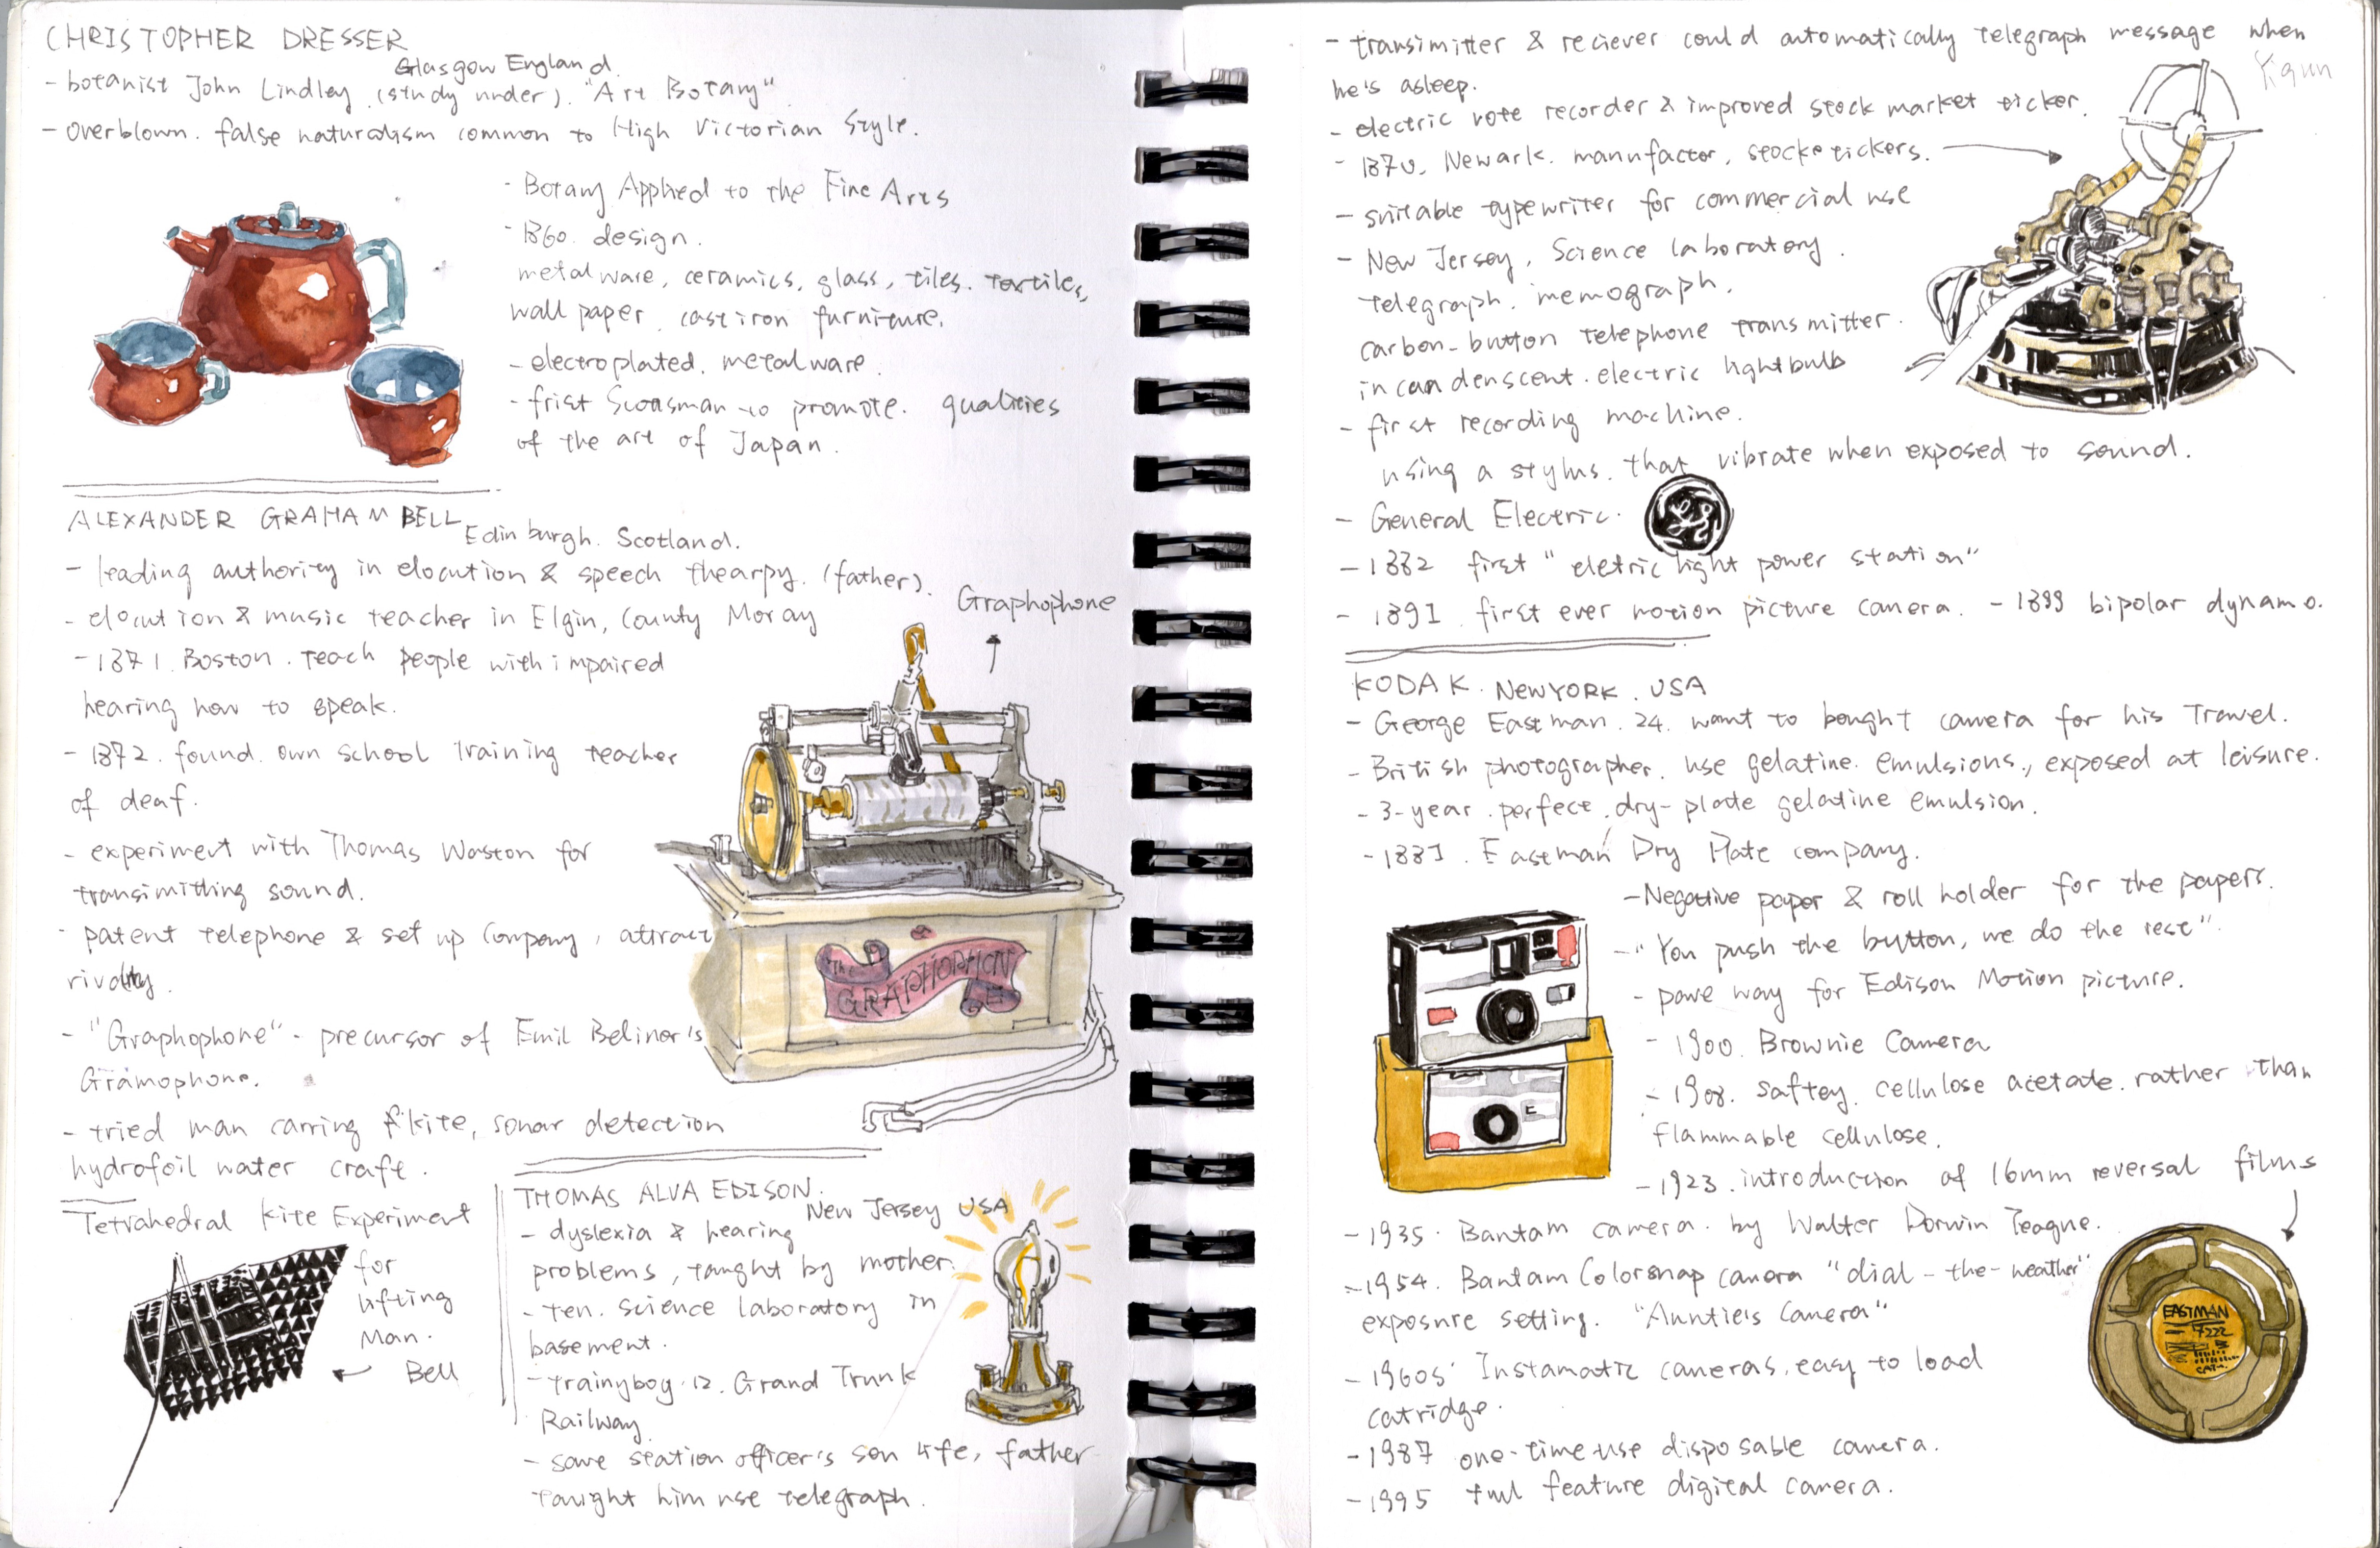 CHRISTOPHER DRESSER
Glasgow England.
- botanist John Lindley. (study under). "Art Botany"
- overblown. false naturalism common to High Victorian Style.
- Botany Applied to the Fine Arts
- 1860. design.
metalware, ceramics, glass, tiles. textiles,
wall paper. cast iron furniture.
- electroplated. metalware.
- frist Scotsman to promote. qualities
of the art of Japan.
ALEXANDER GRAHAM BELL
Edinburgh. Scotland.
- leading authority in elocution & speech thearpy. (father).
- elocution & music teacher in Elgin, County Moray
- 1871. Boston. teach people with impaired
hearing how to speak.
- 1872. found. own school training teacher
of deaf.
- experiment with Thomas Waston for
transimitting sound.
- patent telephone & set up Company, attract
rivalry.
- "Graphophone" - precursor of Emil Beliner's
Gramophone.
- tried man carring kite, sonar detection
hydrofoil water craft.
Graphophone
The
GRAPHOPHONE
Tetrahedral kite Experiment
for
lifting
Man.
Bell
THOMAS ALVA EDISON.
New Jersey USA
- dyslexia & hearing
problems, taught by mother.
- ten. science laboratory in
basement.
- trainyboy. 12. Grand Trunk
Railway
- save station officer's son life, father
taught him use telegraph.
- transimitter & reciever could automatically telegraph message when
he's asleep.
Yiqun
- electric vote recorder & improved stock market ticker.
- 1870. Newark. manufactor, stocke tickers.
- suitable typewriter for commercial use
- New Jersey, Science laboratory.
telegraph. memograph.
carbon-button telephone transmitter.
incandenscent. electric lightbulb
- first recording machine.
using a stylus. that vibrate when exposed to sound.
- General Electric.
- 1882 first "eletric light power station"
- 1891. first ever motion picture camera. - 1899 bipolar dynamo.
KODAK. NEWYORK. USA
- George Eastman. 24. want to bought camera for his Travel.
- British photographer. use gelatine. emulsions., exposed at leisure.
- 3-year. perfect. dry-plate gelatine emulsion.
- 1881. Eastman Dry Plate company.
- Negative paper & roll holder for the papers.
- "You push the button, we do the rest".
- pave way for Edison Motion picture.
- 1900. Brownie Camera
- 1908. saftey. cellulose acetate. rather than
flammable cellulose.
- 1923. introduction of 16mm reversal films
- 1935. Bantam camera. by Walter Dorwin Teague.
- 1954. Bantam Colorsnap camera "dial-the-weather"
exposure setting. "Auntie's Camera"
- 1960s' Instamatic cameras. easy to load
catridge.
- 1987 one-time-use disposable camera.
- 1995 full feature digital camera.
EASTMAN
7222